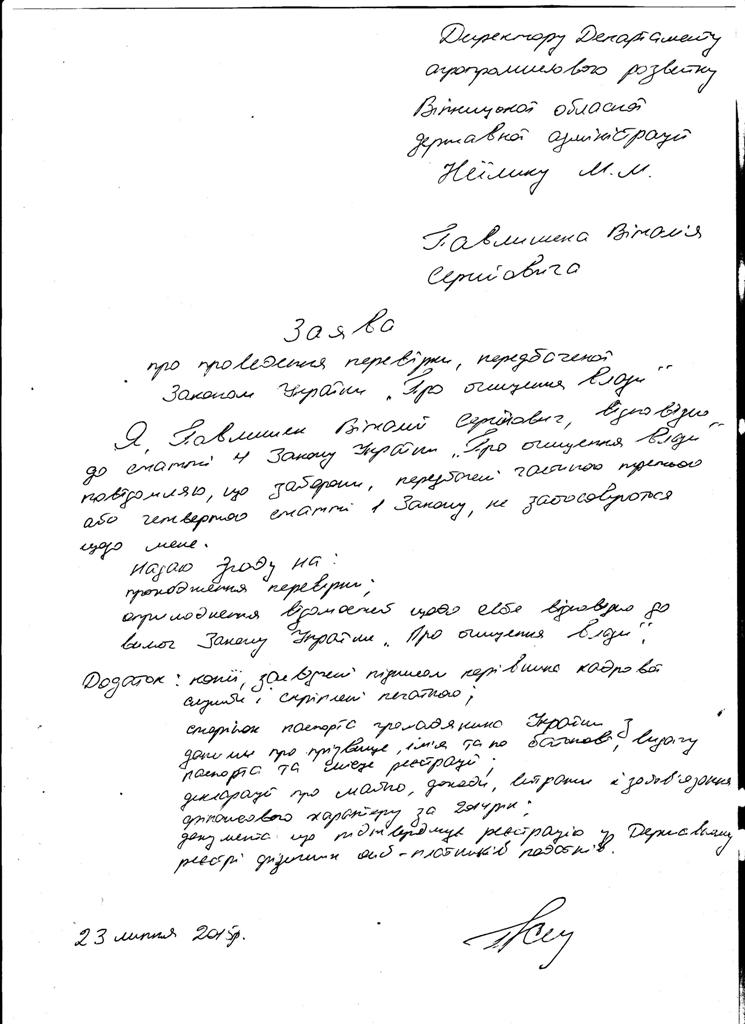 Директору Департаменту
агропромислового розвитку
Вінницької обласної
державної адміністрації
Неїлику М.М.
Павлишена Віталія
Сергійовича
Заява
про проведення перевірки, передбаченої
Законом України „Про очищення влади"
Я, Павлишен Віталій Сергійович, відповідно
до статті 4 Закону України „Про очищення влади"
повідомляю, що заборони, передбачені частиною третьою
або четвертою статті 1 Закону, не застосовуються
щодо мене.
Надаю згоду на:
проходження перевірки;
оприлюднення відомостей щодо себе відповідно до
вимог Закону України „Про очищення влади".
Додаток: копії, засвідчені підписом керівника кадрової
служби і скріплені печаткою;
сторінок паспорта громадянина України з
даними про прізвище, ім'я та по батькові, видачу
паспорта та місце реєстрації;
декларації про майно, доходи, витрати і зобов'язання
фінансового характеру за 2014 рік;
документа що підтверджує реєстрацію у Державному
реєстрі фізичних осіб-платників податків.
23 липня 2015р.